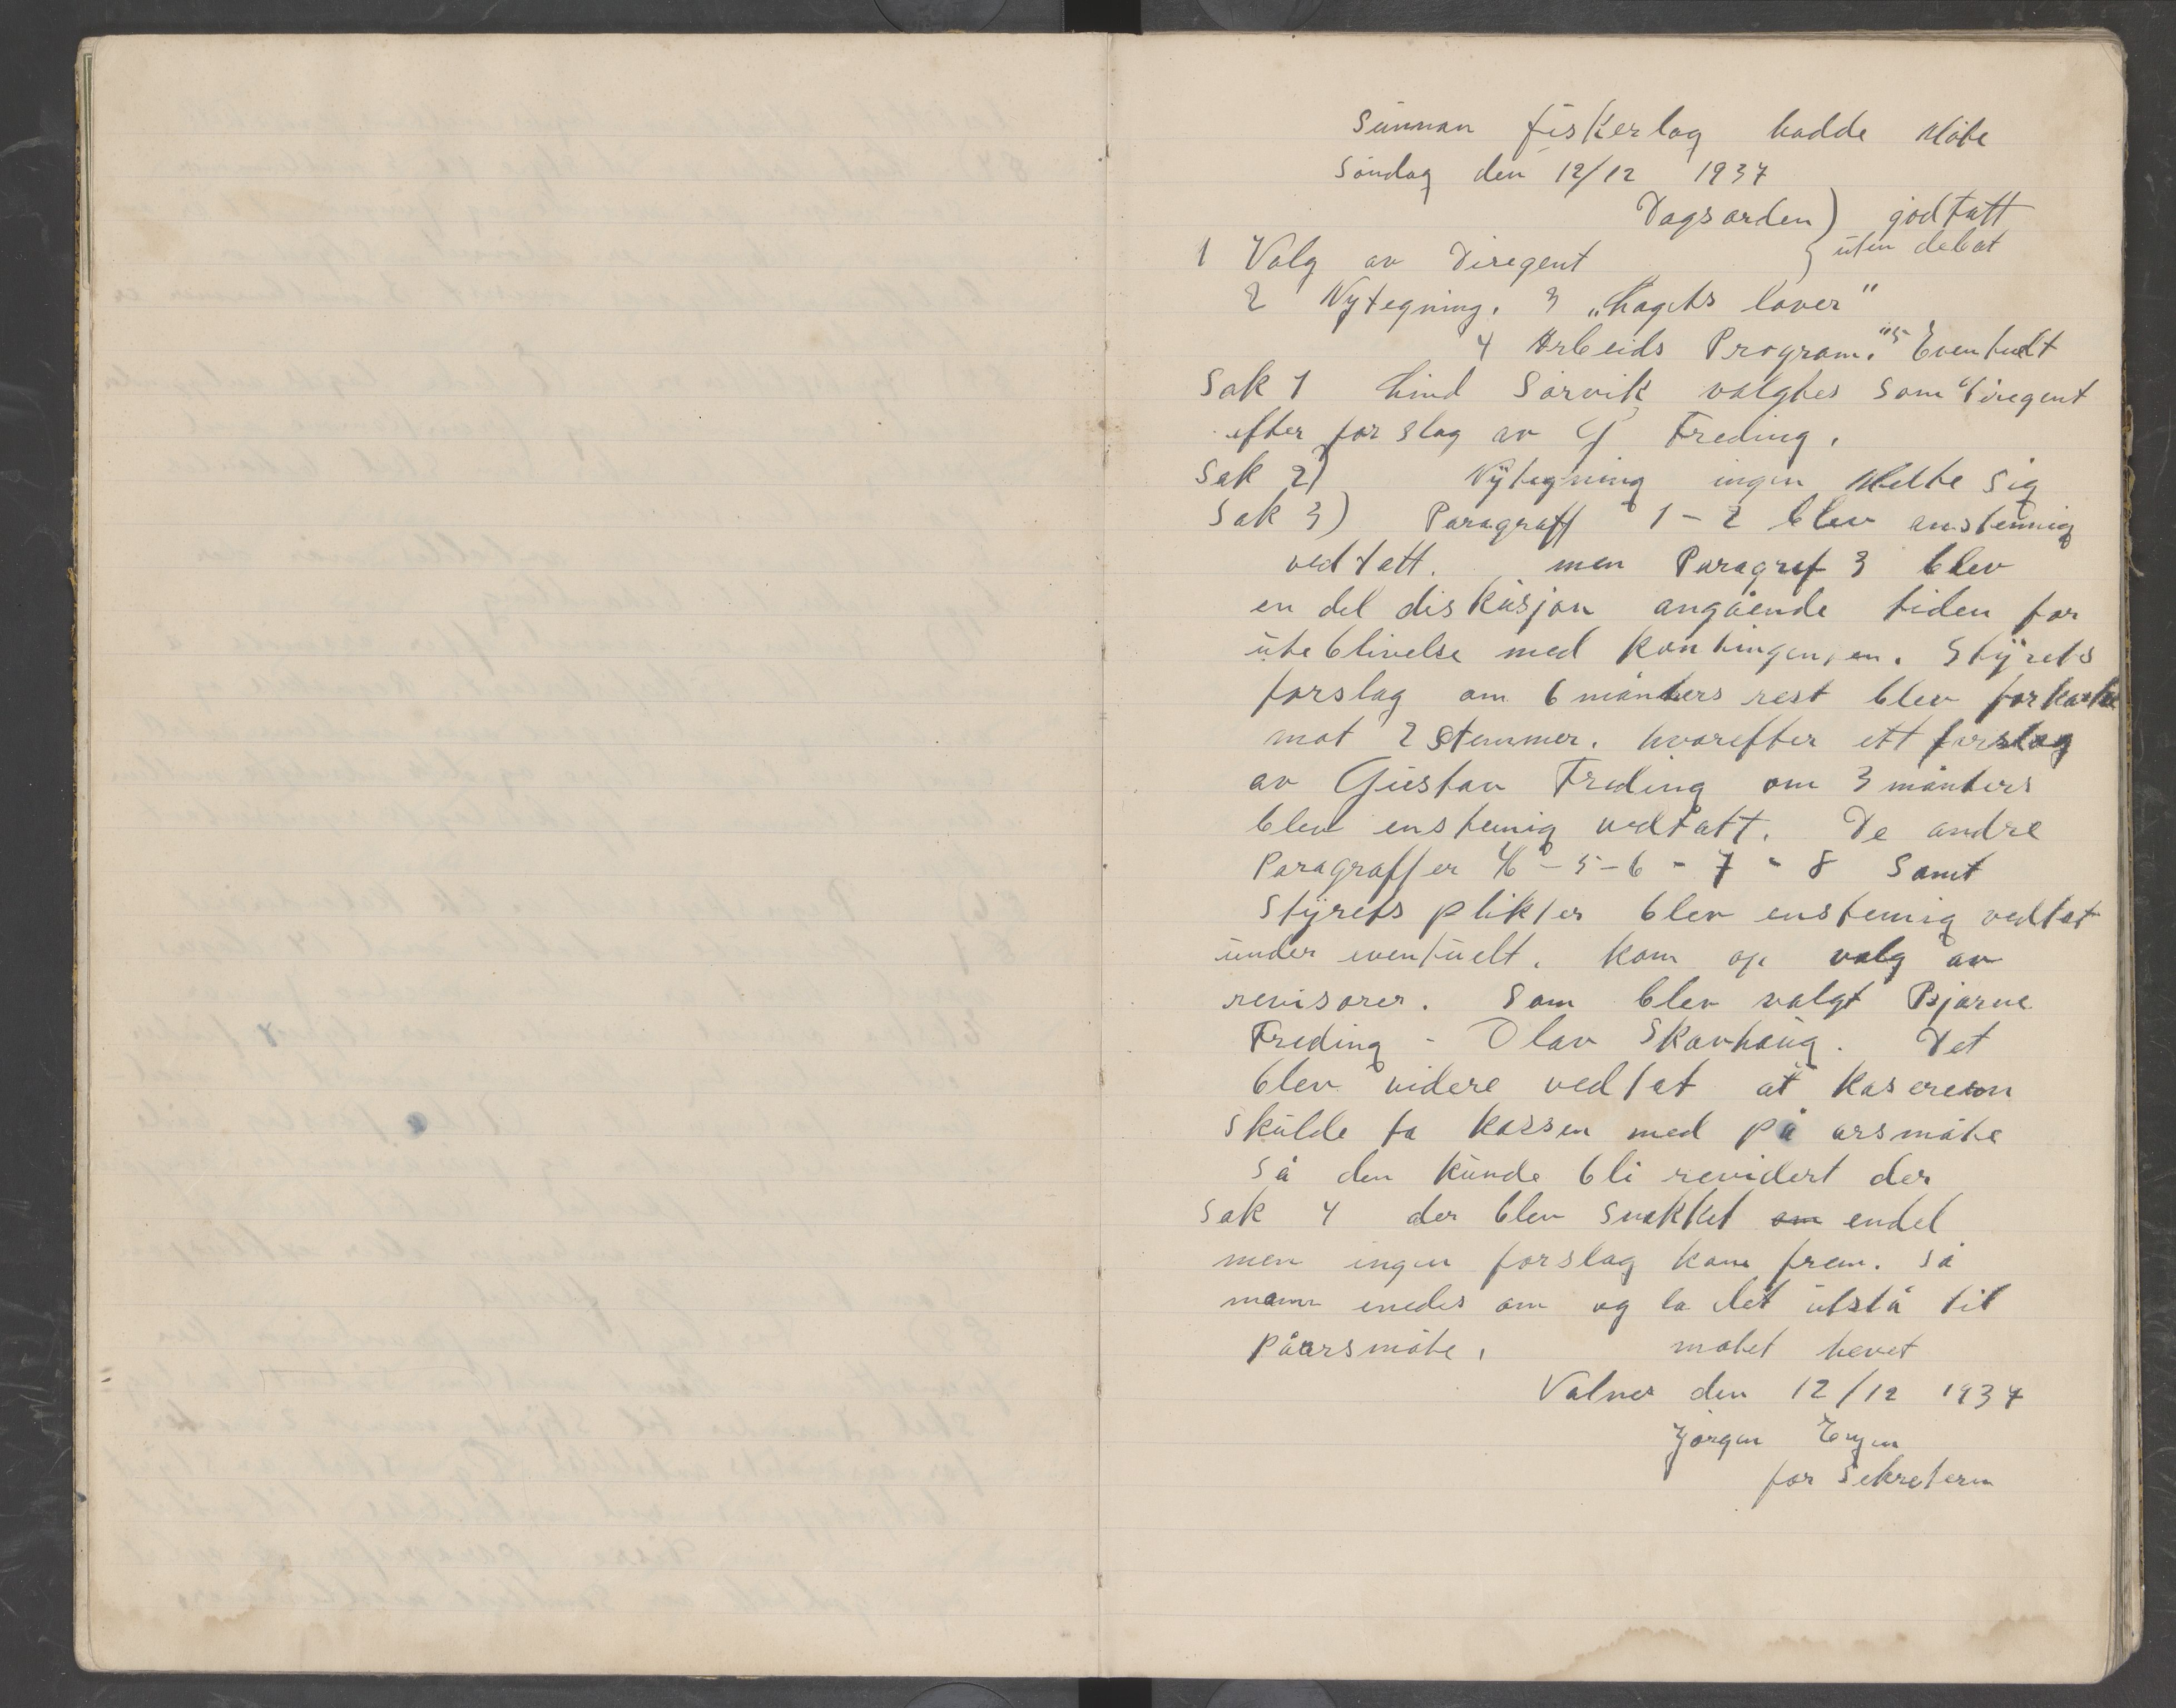 Sunnan fiskerlag hadde Møte
Søndag den 12/12 1937
Dagsorden) godtatt
1 Valg av Diregent } uten debat
2 Nytegning. 3 „Lagets lover"
4 Arbeids Program. "5 Eventuelt
Sak 1 Lind Sørvik valgtes som diregent
efter forslag av G Freding.
Sak 2) Nytegning ingen Melte sig
Sak 3) Paragraff 1-2 blev enstemig
vedtatt. men Paragraf 3 blev
en del diskusjon angående tiden for
uteblivelse med kontingenten. Styrets
forslag om 6 månters rest blev forkaste
mot 2 stemmer. hvorefter ett forslag
av Gustav Freding om 3 månters
blev enstemig vedtatt. De andre
Paragraffer 4-5-6-7-8 samt
Styrets plikter blev enstemig vedtat
under eventuelt. kom op valg av
revisorer. Som blev valgt Bjarne
Freding - Olav Skavhaug. Det
blev videre vedtat at kasereren
skulde ta kassen med på arsmøte
så den kunde bli revidert der
Sak 4 der blev snakket om endel
men ingen forslag kom frem. så
mann enedes om og la det utstå til
på arsmøte. møtet hevet
Valnes den 12/12 1937
Jørgen
for Sekretern